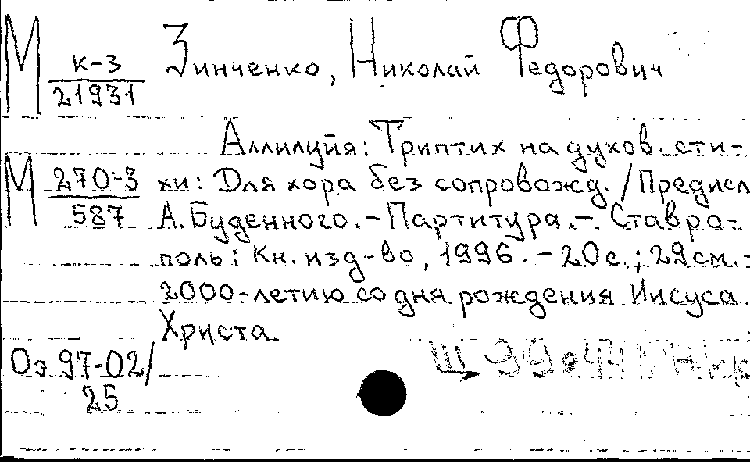 М к-3/21931 Зинченко, Николай Федорович
Аллилуйя: Триптих на духов. сти-
М 270-3/587 хи: Для хора без сопровожд. / Предисл
А. Буденного. - Партитура. - Ставро-
поль: Кн. изд-во, 1996. - 20 с.; 29 см. -
2000-летию со дня рождения Иисуса
Христа
Оэ 97-02/25